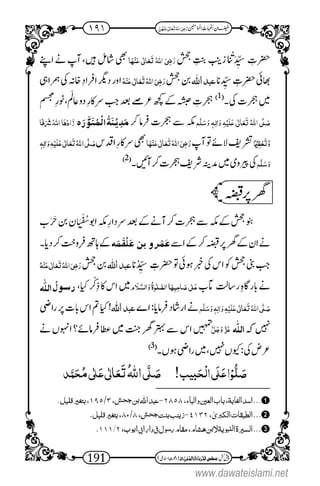 فیضانِ اُمّہاتُ المؤمنین
۱۹۱
حضرتِ سیِّدَتُنا زینب بنتِ جحش رَضِیَ اللہُ تَعَالٰی عَنْہَا بھی شامل ہیں، آپ نے اپنے
بھائی حضرتِ سیِّدُنا عبد اللہ بن جحش رَضِیَ اللہُ تَعَالٰی عَنْہُ اور دیگر افرادِ خانہ کی ہمراہی
میں ہجرت کی۔(1) ہجرتِ حبشہ کے کچھ عرصے بعد جب سرکارِ دو عالَم، نورِ مجسم
صَلَّی اللہُ تَعَالٰی عَلَیْہِ وَاٰلِہٖ وَسَلَّم مکہ سے ہجرت فرما کر مَدِیْنَۃُ الْمُنَوَّرَہ زَادَھَا اللہُ شَرَفًا
وَّ تَعْظِیْمًا تشریف لائے تو آپ رَضِیَ اللہُ تَعَالٰی عَنْہَا بھی سرکارِ اقدس صَلَّی اللہُ تَعَالٰی عَلَیْہِ وَاٰلِہٖ
وَسَلَّم کی پیروی میں مدینہ شریف ہجرت کر آئیں۔(2)
گھر پر قبضہ
بنو جحش کے مکہ سے ہجرت کر آنے کے بعد سردارِ مکہ ابو سُفْیَان بن حَرْب
نے ان کے گھر پر قبضہ کر کے اسے عَمْرو بِنْ عَلْقَمَہ کے ہاتھ فروخت کر دیا۔
جب بنی جحش کو اس کی خبر ہوئی تو حضرتِ سیِّدُنا عبد اللہ بن جحش رَضِیَ اللہُ تَعَالٰی عَنْہُ
نے بارگاہِ رسالت مآب عَلٰی صَاحِبِہَا الصَّلٰوۃُ وَالسَّلَام میں اس کا ذِکْر کیا، رسول اللہ
صَلَّی اللہُ تَعَالٰی عَلَیْہِ وَاٰلِہٖ وَسَلَّم نے ارشاد فرمایا: اے عبد اللہ! کیا تم اس بات پر راضی
نہیں کہ اللہ عَزَّوَجَلَّ تمہیں اس سے بہتر گھر جنت میں عطا فرمائے؟ انہوں نے
عرض کی: کیوں نہیں، میں راضی ہوں۔(3)
صَلُّوْا عَلَی الْحَبِیْب! صَلَّی اللہُ تَعَالٰی عَلٰی مُحَمَّد
1...اسد الغابۃ، باب العین والباء، ۲۸۵۸-عبد اللہ بن جحش، ۳/۱۹۵، بتغیر قلیل.
2...الطبقات الکبریٰ، ۴۱۳۲-زینب بنت جحش، ۸/۸۰، بتغیر قلیل.
3...السیرۃ النبویۃ لابن ہشام، مقامہ رسول فی دار ابی ایوب، ۲/۱۱۱.
191
www.dawateislami.net